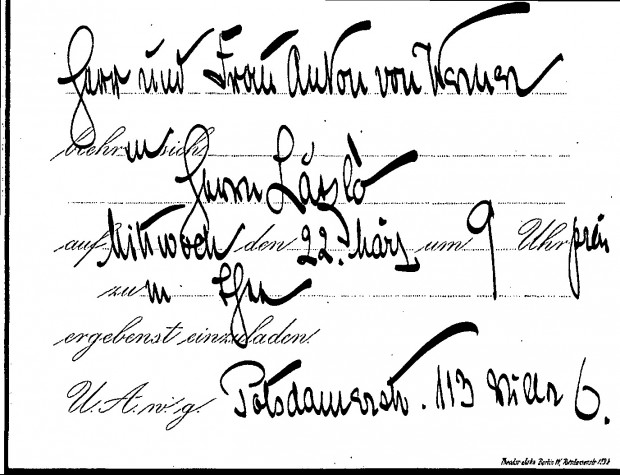 Herr und Frau Anton von Werner
beehren sich
Herrn László
auf Mittwoch den 22. März um 9 Uhr präs
zum Thee
ergebenst einzuladen.
U. A. w. g. Potsdamerstr. 113 Villa 6.
Berlin W, Potsdamerstr.